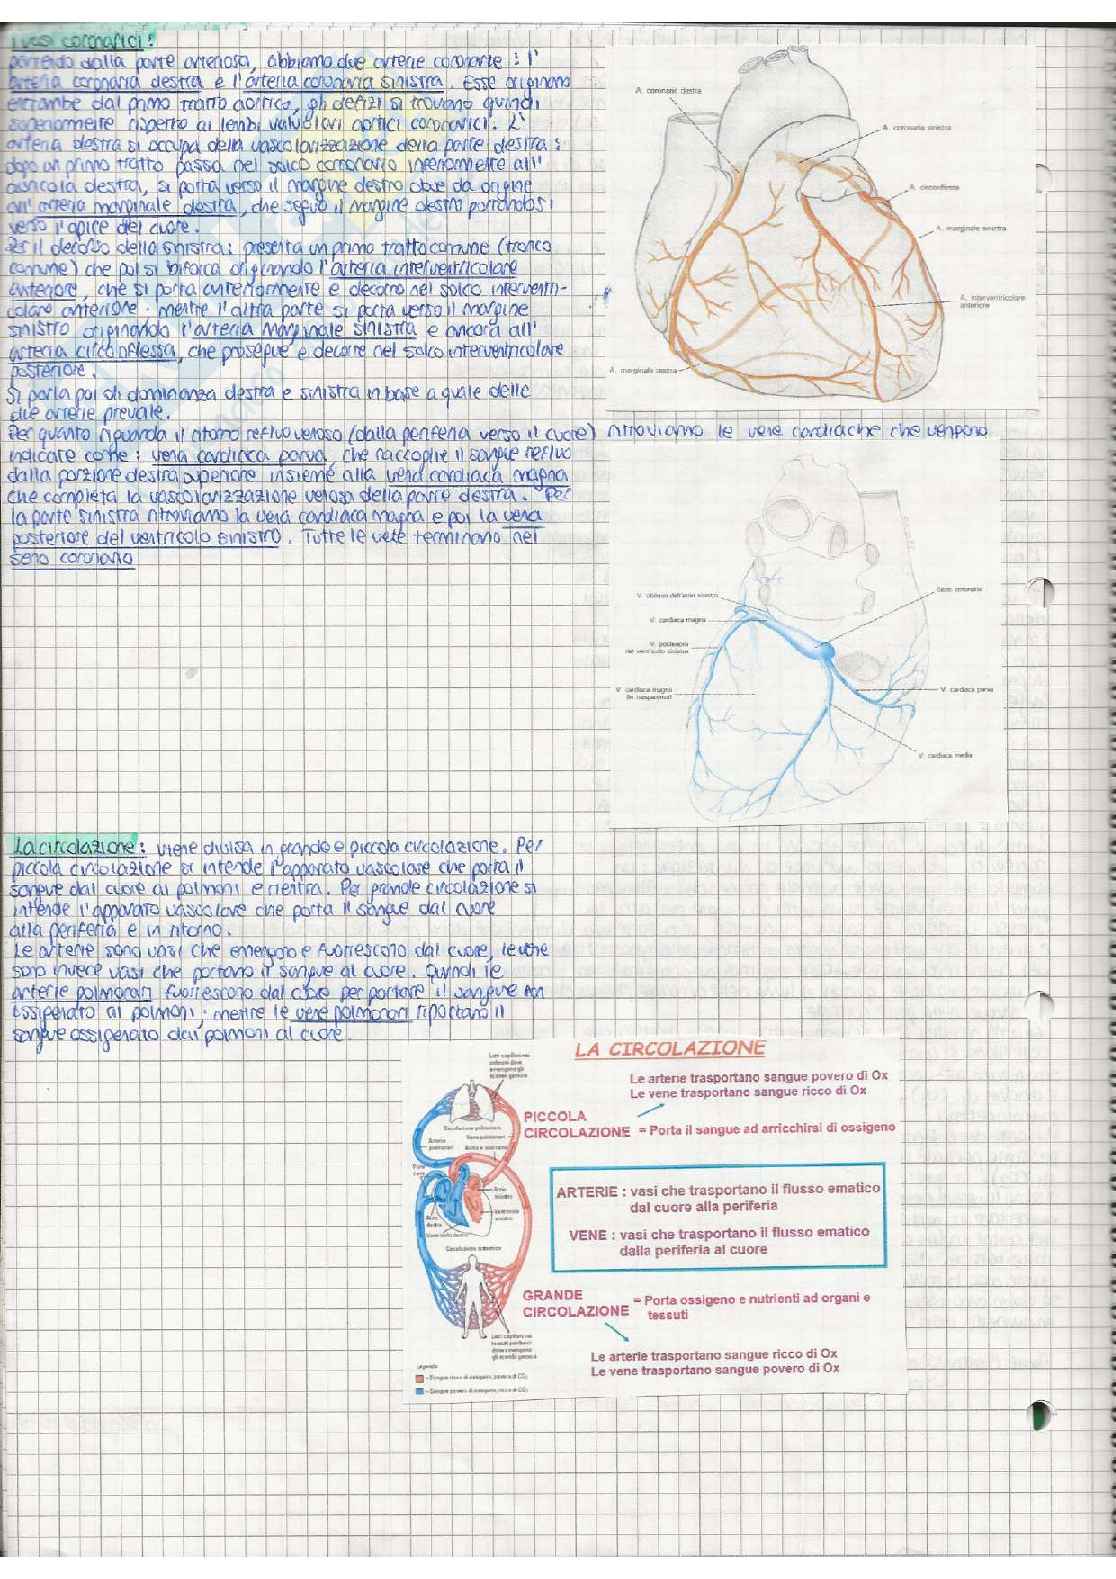 I vasi coronarici:
partendo dalla parte arteriosa, abbiamo due arterie coronarie: l'
arteria coronaria destra e l'arteria coronaria sinistra. Esse originano
entrambe dal primo tratto aortico, gli orifizi si trovano quindi
superiormente rispetto ai lembi valvolari aortici coronarici. L'
arteria destra si occupa della vascolarizzazione della parte destra:
dopo un primo tratto passa nel solco coronario inferiormente all'
auricola destra, si porta verso il margine destro dove da origine
all'arteria marginale destra, che segue il margine destro portandosi
verso l'apice del cuore.
Per il decorso della sinistra: presenta un primo tratto comune (tronco
comune) che poi si biforca originando l'arteria interventricolare
anteriore, che si porta anteriormente e decorre nel solco interventri-
colare anteriore. mentre l'altra parte si porta verso il margine
sinistro originando l'arteria marginale sinistra e ancora all'
arteria circonflessa, che prosegue e decorre nel solco interventricolare
posteriore.
Si parla poi di dominanza destra e sinistra in base a quale delle
due arterie prevale.
Per quanto riguarda il ritorno refluo venoso (dalla periferia verso il cuore) ritroviamo le vene cardiache che vengono
indicate come: vena cardiaca parva, che raccoglie il sangue refluo
dalla porzione destra superiore insieme alla vena cardiaca magna
che completa la vascolarizzazione venosa della parte destra. Per
la parte sinistra ritroviamo la vena cardiaca magna e poi la vena
posteriore del ventricolo sinistro. Tutte le vene terminano nel
seno coronario
A. coronaria destra
A. coronaria sinistra
A. circonflessa
A. marginale sinistra
A. interventricolare
anteriore
A. marginale destra
V. obliqua dell'atrio sinistro
Seno coronario
V. cardiaca magna
V. posteriore
del ventricolo sinistro
V. cardiaca magna
(in trasparenza)
V. cardiaca parva
V. cardiaca media
La circolazione: viene divisa in grande e piccola circolazione. Per
piccola circolazione si intende l'apparato vascolare che porta il
sangue dal cuore ai polmoni e rientra. Per grande circolazione si
intende l'apparato vascolare che porta il sangue dal cuore
alla periferia e in ritorno.
Le arterie sono vasi che emergono e fuoriescono dal cuore, le vene
sono invece vasi che portano il sangue al cuore. Quindi le
arterie polmonari fuoriescono dal cuore per portare il sangue non
ossigenato ai polmoni; mentre le vene polmonari riportano il
sangue ossigenato dai polmoni al cuore.
LA CIRCOLAZIONE
Le arterie trasportano sangue povero di Ox
Le vene trasportano sangue ricco di Ox
PICCOLA
CIRCOLAZIONE = Porta il sangue ad arricchirsi di ossigeno
ARTERIE : vasi che trasportano il flusso ematico
dal cuore alla periferia
VENE : vasi che trasportano il flusso ematico
dalla periferia al cuore
GRANDE
CIRCOLAZIONE = Porta ossigeno e nutrienti ad organi e
tessuti
Le arterie trasportano sangue ricco di Ox
Le vene trasportano sangue povero di Ox
Circolazione polmonare
Arterie
polmonari
Vene polmonari
Atrio
sinistro
Ventricolo
sinistro
Atrio
destro
Circolazione sistemica
Legenda
= Sangue ricco di ossigeno, povero di CO₂
= Sangue povero di ossigeno, ricco di CO₂